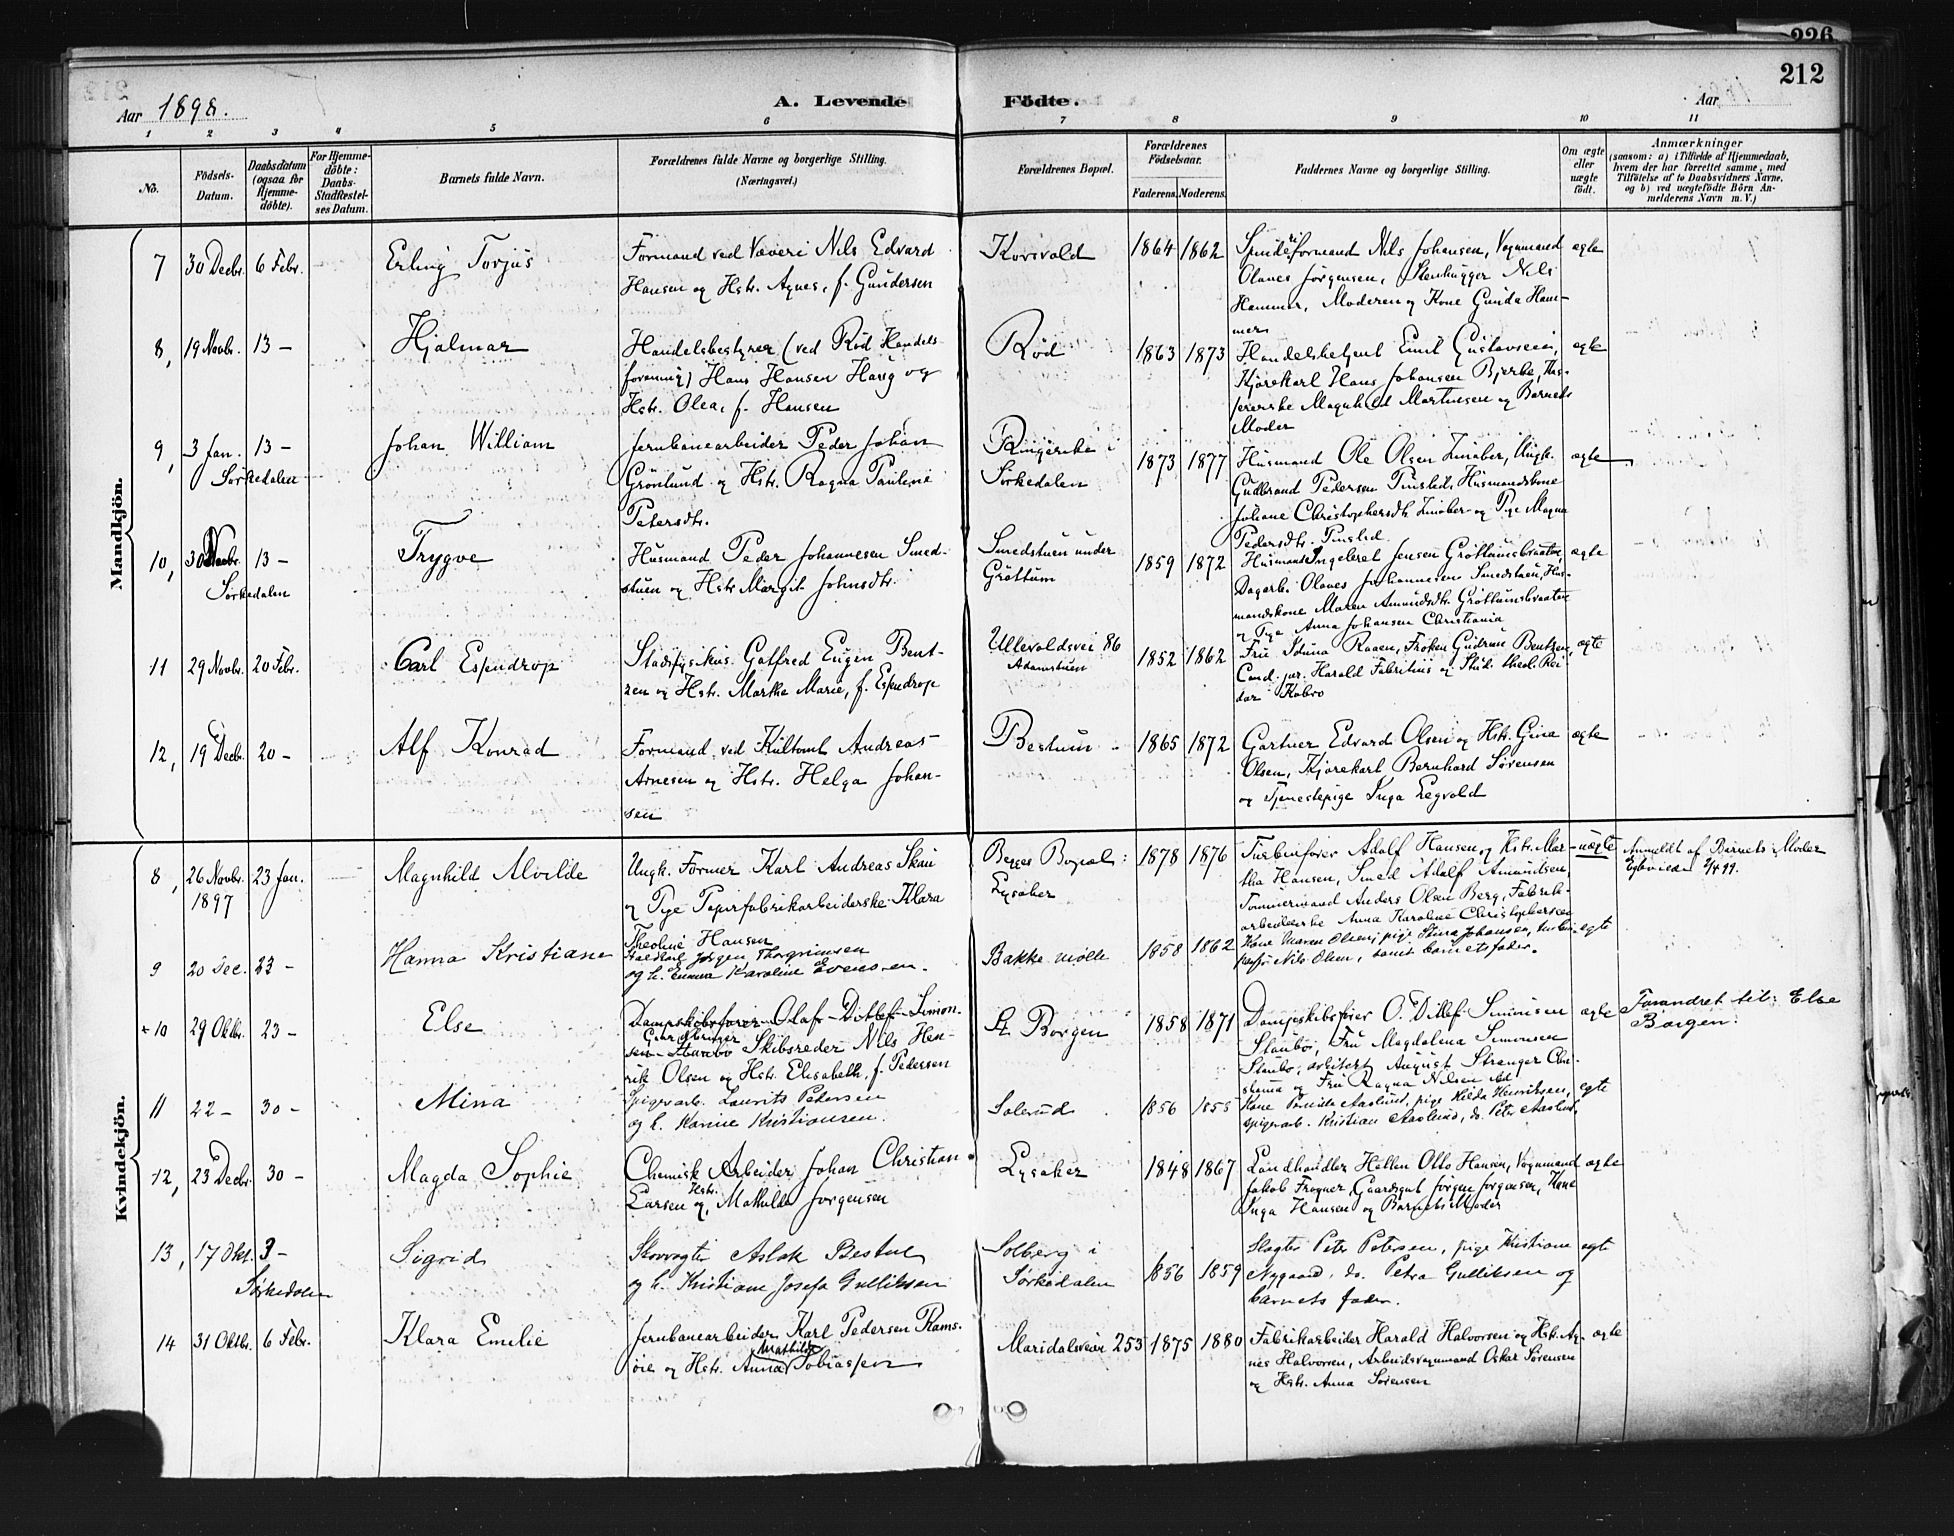 226
212
Aar 1898.
A. Levende Födte.
Aar
1 2 3 4 5 6 7 8 9 10 11
No.
Födsels-Datum.
Daabsdatum (ogsaa for Hjemme-döbte).
For Hjemme-döbte: Daabs-Stadfæstel-ses Datum.
Barnets fulde Navn.
Forældrenes fulde Navne og borgerlige Stilling. (Næringsvei.)
Forældrenes Bopæl.
Forældrenes Födselsaar.
Faderens. Moderens.
Faddernes Navne og borgerlige Stilling.
Om ægte eller uægte födt.
Anmærkninger
(saasom: a) i Tilfælde af Hjemmedaab,
hvem der har forrettet samme, med
Tilföielse af to Daabsvidners Navne,
og b) ved uægtefödte Börn An-
melderens Navn m. V.)
Mandkjön.
7 30 Decbr. 6 Febr. Erling Torjus
Formand ved Væveri Nils Edvard
Hansen og Hstr. Agnes, f. Gundersen
Korsvold 1864 1862
Formand Nils Johansen, Vognmand
Olaves Jørgensen, Stenhugger Nils
Hammer, Moderen og Kone Gunda Ham-
mer
ægte
8, 19 Novbr. 13 — Hjalmar
Handelsbestyrer (ved Röd Handels-
forening) Hans Hansen Haug og
Hstr. Olea, f. Hansen
Röd 1863 1873
Handelsbetjent Gustavsen,
Kjørekarl Hans Johansen Bjerke,
Magnhild Martinsen og Barnets
Moder
ægte
9, 3 Jan. 13 — Johan William
Sörkedalen
Jernbanearbeider Peder Johan
Grönlund og Hstr. Ragna Pauline
Petersdtr.
Ringerike i
Sörkedalen 1873 1877
Husmand Ole Olsen Zinober, Ungk.
Gudbrand Pedersen Tinslid, Husmandskone
Johane Christophersdtr. Zinober og Pige Magna
Pedersdtr. Tinslid
ægte
10, 30 Novbr. 13 — Trygve
Sörkedalen
Husmand Peder Johannesen Smed-
stuen og Hstr. Margit Johnsdtr.
Smedstuen under
Gröttum 1859 1872
Husmand Ingebret Jensen Gröttumsbraaten,
Dagarb. Olaves Johannesen Smedstuen, Hus-
mandskone Maren Amundsdtr. Gröttumsbraaten
og Pige Anna Johansen Christiania
ægte
11 29 Novbr. 20 Febr. Carl Espendrop
Stadsfysikus Gotfred Eugen Bent-
zen og Hstr. Marthe Marie, f. Espendrop
Ullevoldsvei 86
Adamstuen 1852 1862
Fru Raaen, Fröken Gudrun Bentzen,
Cand. jur. Harald Fabritius og Stud. theol. Rei-
dar Kobro
ægte
12, 19 Decbr. 20 — Alf Konrad
Formand ved Andreas
Arnesen og Hstr. Helga Johan-
sen
Bestum 1865 1872
Gartner Edvard Olsen og Hstr. Gina
Olsen, Kjørekarl Bernhard Sørensen
og Tjenestepige Inga Legvold
ægte
Kvindekjön.
8, 26 Novbr. 1897 23 Jan. Magnhild Alvilde
Ungk. Former Karl Andreas Skau
og Pige Papirfabrikarbeiderske Klara
Theoline Hansen
Begges Bopæl:
Lysaker 1878 1876
Adolf Hansen og Hstr. Mar-
tha Hansen, Smed Adolf Amundsen,
Tømmermand Anders Olsen Berg, Fabrik-
arbeiderske Anna Karoline Christophersen
uægte
Anmeldt af Barnets Moder
2/4 99.
9 20 Dec. 23 — Hanna Kristiane
Jörgen Thorgrimsen
og h. Emma Karoline Evensen.
Bakke mölle 1858 1862
Kone Maren Olsen, pige Stina Johansen,
Nils Olsen, samt barnets fader.
egte
+ 10 29 Oktbr. 23 — Else
Dampskibsfører Olaf Ditlef-Simon-
sen Skibsreder Nils Hen-
rik Olsen og Hstr. Elisabeth, f. Pedersen
St. Borgen 1858 1871
Dampskibsfører O. Ditlef-Simonsen
Stanbo, Fru Magdalena Simonsen
Stanbo, arkitekt August Stranger Chri-
stiania og Fru Ragna Nilsen
ægte
Forandret til: Else
Borgen.
11 22 — 30 — Mina
Spigerarb. Laurits Pedersen
og h. Karine Kristiansen.
Solerud 1856 1855
Kone Aaslund, pige Hilda Henriksen,
spigerarb. Kristian Aaslund, do. Peter Aaslund
egte
12, 23 Decbr. 30 — Magda Sophie
Chemisk Arbeider Johan Christian
Larsen og Hstr. Mathilde Jørgensen
Lysaker 1848 1867
Landhandler Otto Hansen, Vognmand
Jakob Frogner, Gaardsgut Jørgen Jørgensen, Kone
Inga Hansen og Barnets Moder
ægte
13, 17 Okt. 3 — Sigrid
Sörkedalen
Skovvogter Aslak Bestul
og h. Kristiane Josefa Gulliksen
Solberg i
Sørkedalen 1856 1859
Slagter Peter Petersen, pige Kristiane
Nygaard, do. Petra Gulliksen og
barnets fader.
egte
14 31 Oktbr. 6 Febr. Klara Emilie
Jernbanearbeider Karl Pedersen Rams-
öie og Hstr. Anna Mathilde Tobiassen
Maridalsveien 253 1875 1880
Fabrikarbeider Harald Halvorsen og Hstr. Ag-
nes Halvorsen, Arbeidsvognmand Oskar Sørensen
og Hstr. Anna Sørensen
ægte